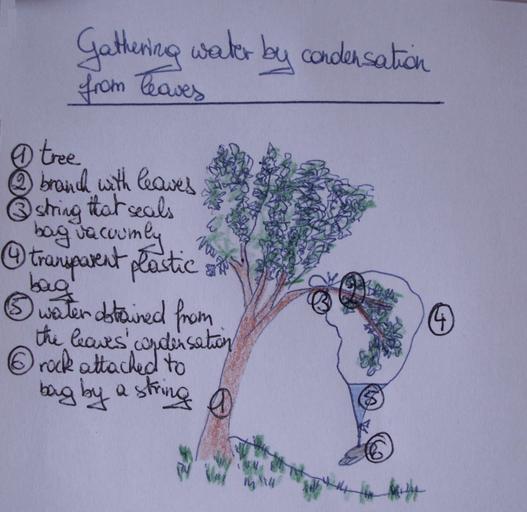 Gathering water by condensation
from leaves
① tree
② branch with leaves
③ string that seals
bag vacuumly
④ transparent plastic
bag
⑤ water obtained from
the leaves' condensation
⑥ rock attached to
bag by a string
②
③
④
⑤
①
⑥